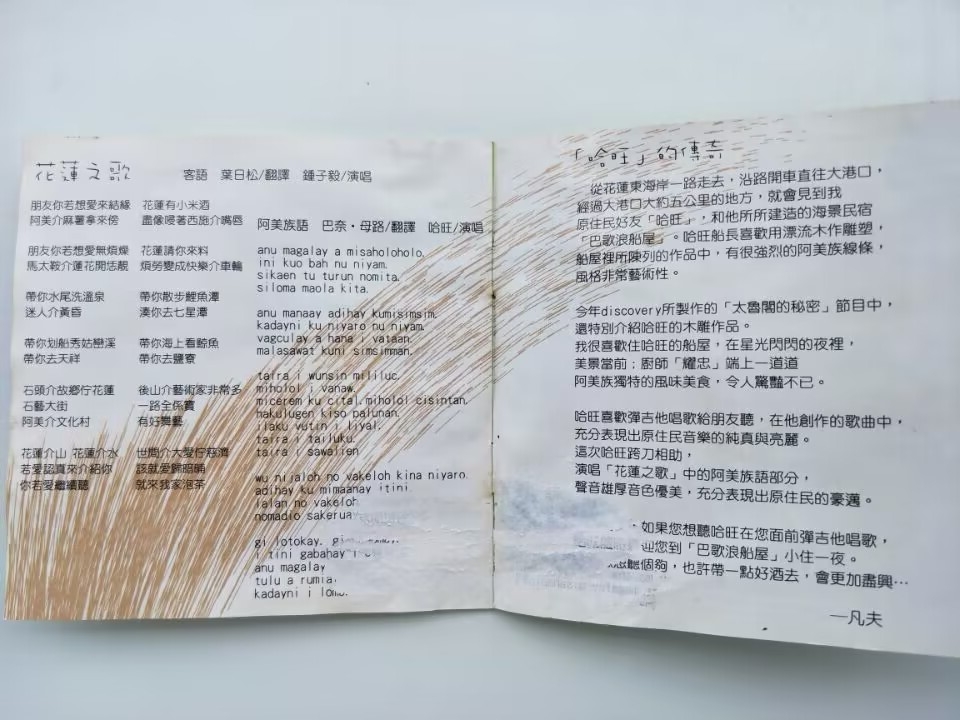 花蓮之歌
客語　葉日松/翻譯　鍾子毅/演唱
朋友你若想愛來結緣　花蓮有小米酒
阿美介麻薯拿來傍　盡像浸著西施介嘴唇
朋友你若想愛無煩燥　花蓮請你來料
馬太鞍介蓮花開恁靚　煩勞變成快樂介車輪
帶你水尾洗溫泉　帶你散步鯉魚潭
迷人介黃昏　湊你去七星潭
帶你划船秀姑巒溪　帶你海上看鯨魚
帶你去天祥　帶你去鹽寮
石頭介故鄉佇花蓮　後山介藝術家非常多
石藝大街　一路全係寶
阿美介文化村　有好舞藝
花蓮介山 花蓮介水　世間介大愛佇慈濟
若愛認真來介紹你　該就愛歸暗晡
你若愛繼續聽　就來我家泡茶
阿美族語　巴奈・母路/翻譯　哈旺/演唱
anu magalay a misaholoholo.
ini kuo bah nu niyam.
sikaen tu turun nomita.
siloma maola kita.
anu manaay adihay kumisimsim.
kadayni ku niyaro nu niyam.
vagculay a hana i vataan.
malasawat kuni simsimman.
taira i wunsin mililuc.
miholol i vanaw.
micerem ku cital.miholol cisintan.
hakulugen kiso palunan.
ilaku vutin i liyal.
taira i tailuku.
taira i sawalien
wu nijaloh no vakeloh kina niyaro.
adihay ku mimaanay itini.
lalan no vakeloh
nomadio sakerua
gi lotokay.
i tini gabahay i
anu magalay
tulu a rumia.
kadayni i
「哈旺」的傳奇
從花蓮東海岸一路走去，沿路開車直往大港口，
經過大港口大約五公里的地方，就會見到我
原住民好友「哈旺」，和他所所建造的海景民宿
「巴歌浪船屋」。哈旺船長喜歡用漂流木作雕塑，
船屋裡所陳列的作品中，有很強烈的阿美族線條，
風格非常藝術性。
今年discovery所製作的「太魯閣的秘密」節目中，
還特別介紹哈旺的木雕作品。
我很喜歡住哈旺的船屋，在星光閃閃的夜裡，
美景當前；廚師「耀忠」端上一道道
阿美族獨特的風味美食，令人驚豔不已。
哈旺喜歡彈吉他唱歌給朋友聽，在他創作的歌曲中，
充分表現出原住民音樂的純真與亮麗。
這次哈旺跨刀相助，
演唱「花蓮之歌」中的阿美族語部分，
聲音雄厚音色優美，充分表現出原住民的豪邁。
，如果您想聽哈旺在您面前彈吉他唱歌，
迎您到「巴歌浪船屋」小住一夜。
聽個夠，也許帶一點好酒去，會更加盡興…
—凡夫